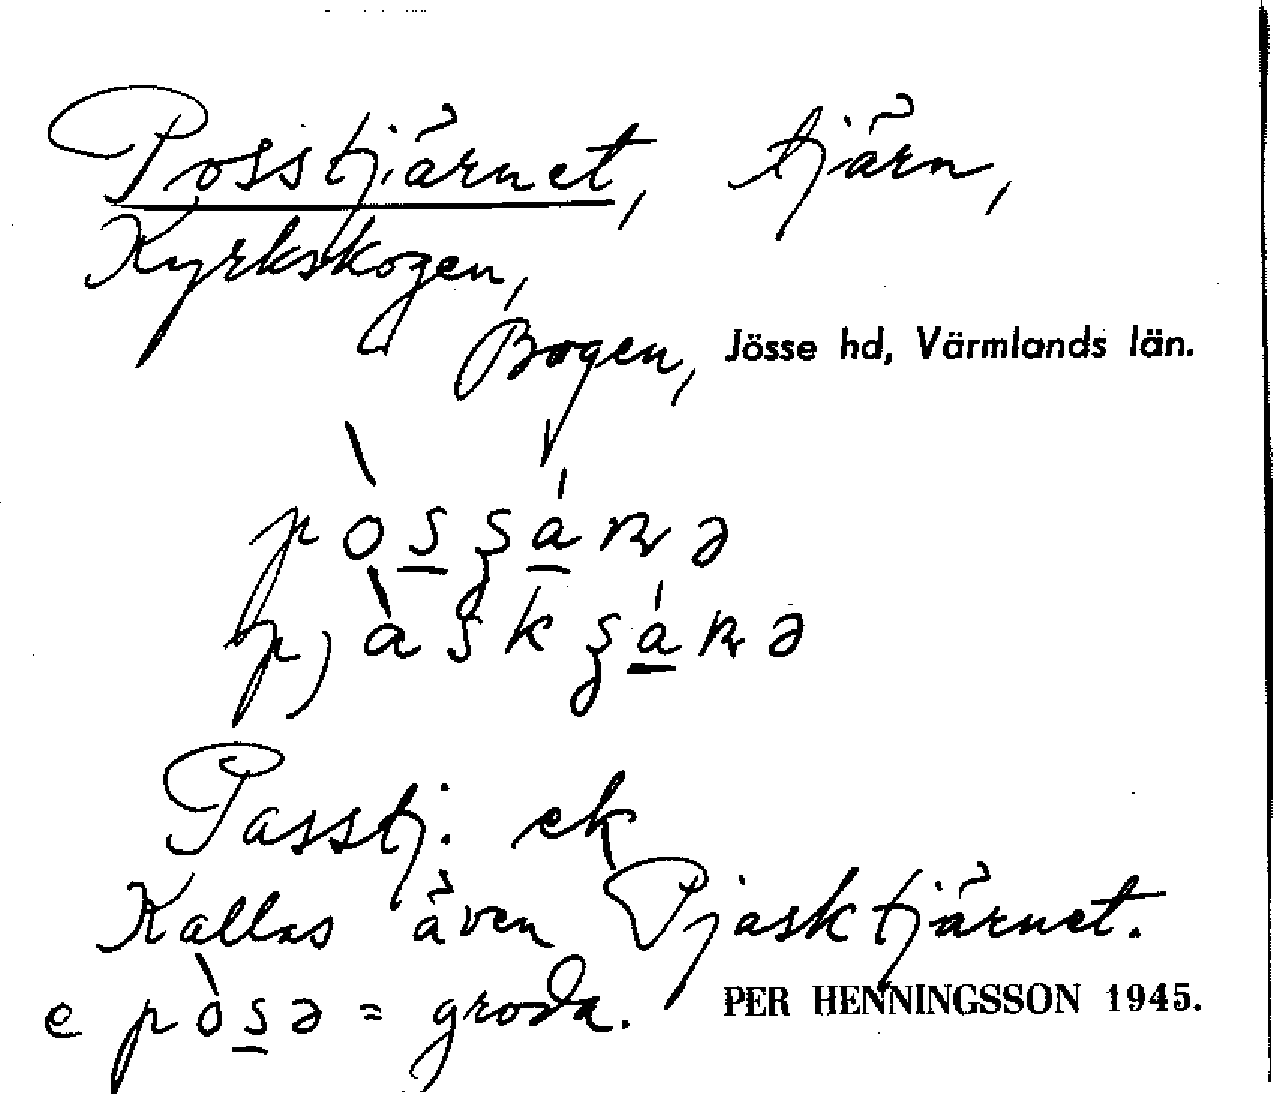 Posstjärnet, tjärn,
Kyrkskogen,
Bogen, Jösse hd, Värmlands län.
Passtj. ek
Kallas även Pjasktjärnet.
e pòsə = groda. PER HENNINGSSON 1945.